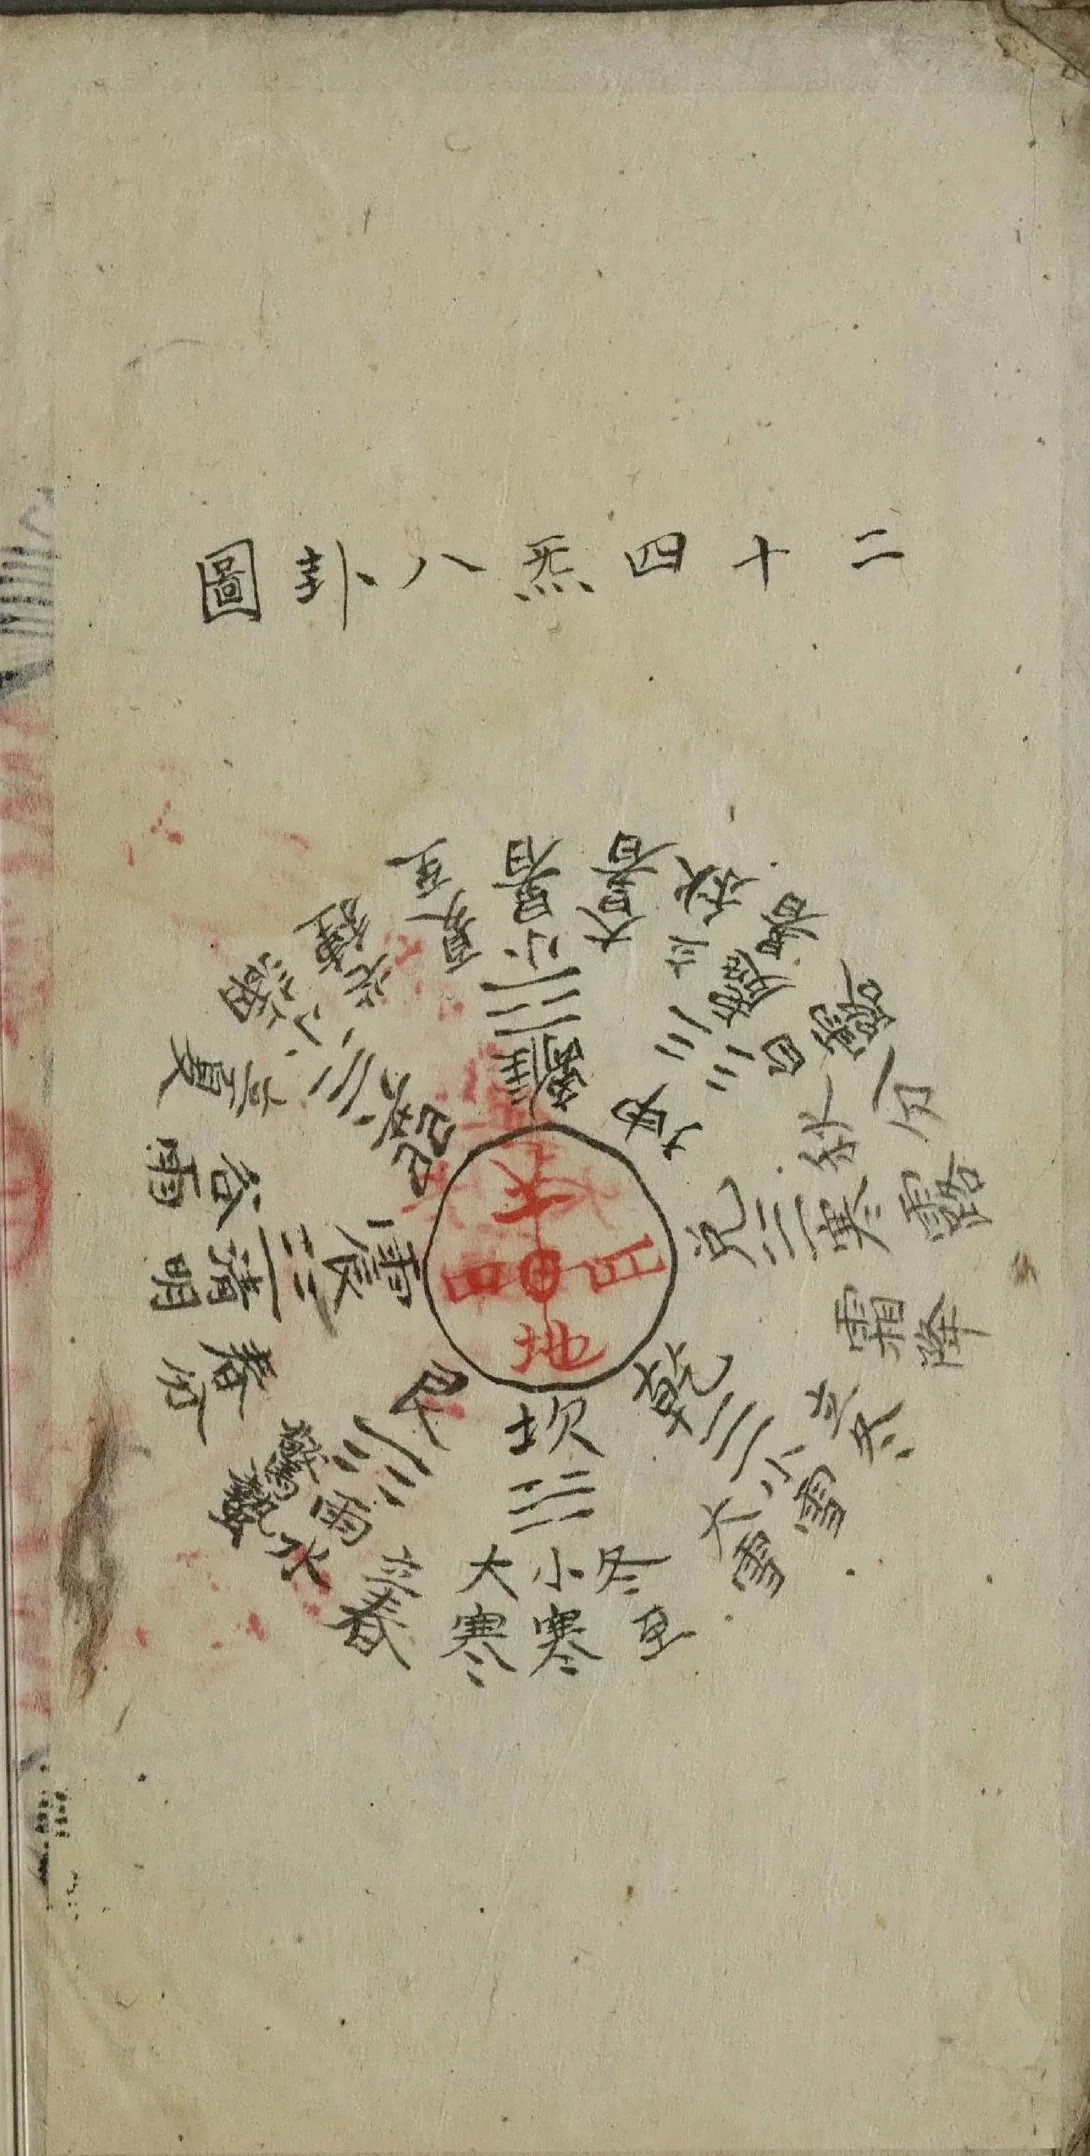 二十四炁八卦圖
天
日
月
地
離
坤
兌
乾
坎
艮
震
巽
夏至
小暑
大暑
立秋
處暑
白露
秋分
寒露
霜降
立冬
小雪
大雪
冬至
小寒
大寒
立春
雨水
驚蟄
春分
清明
谷雨
立夏
小滿
芒種